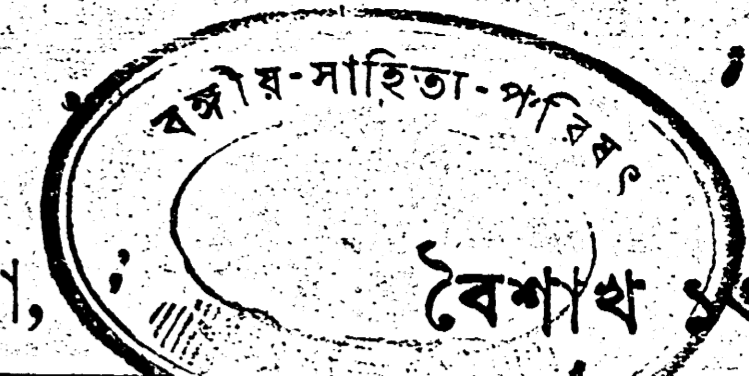 বঙ্গীয়-সাহিত্য-পরিষৎ
বৈশাখ